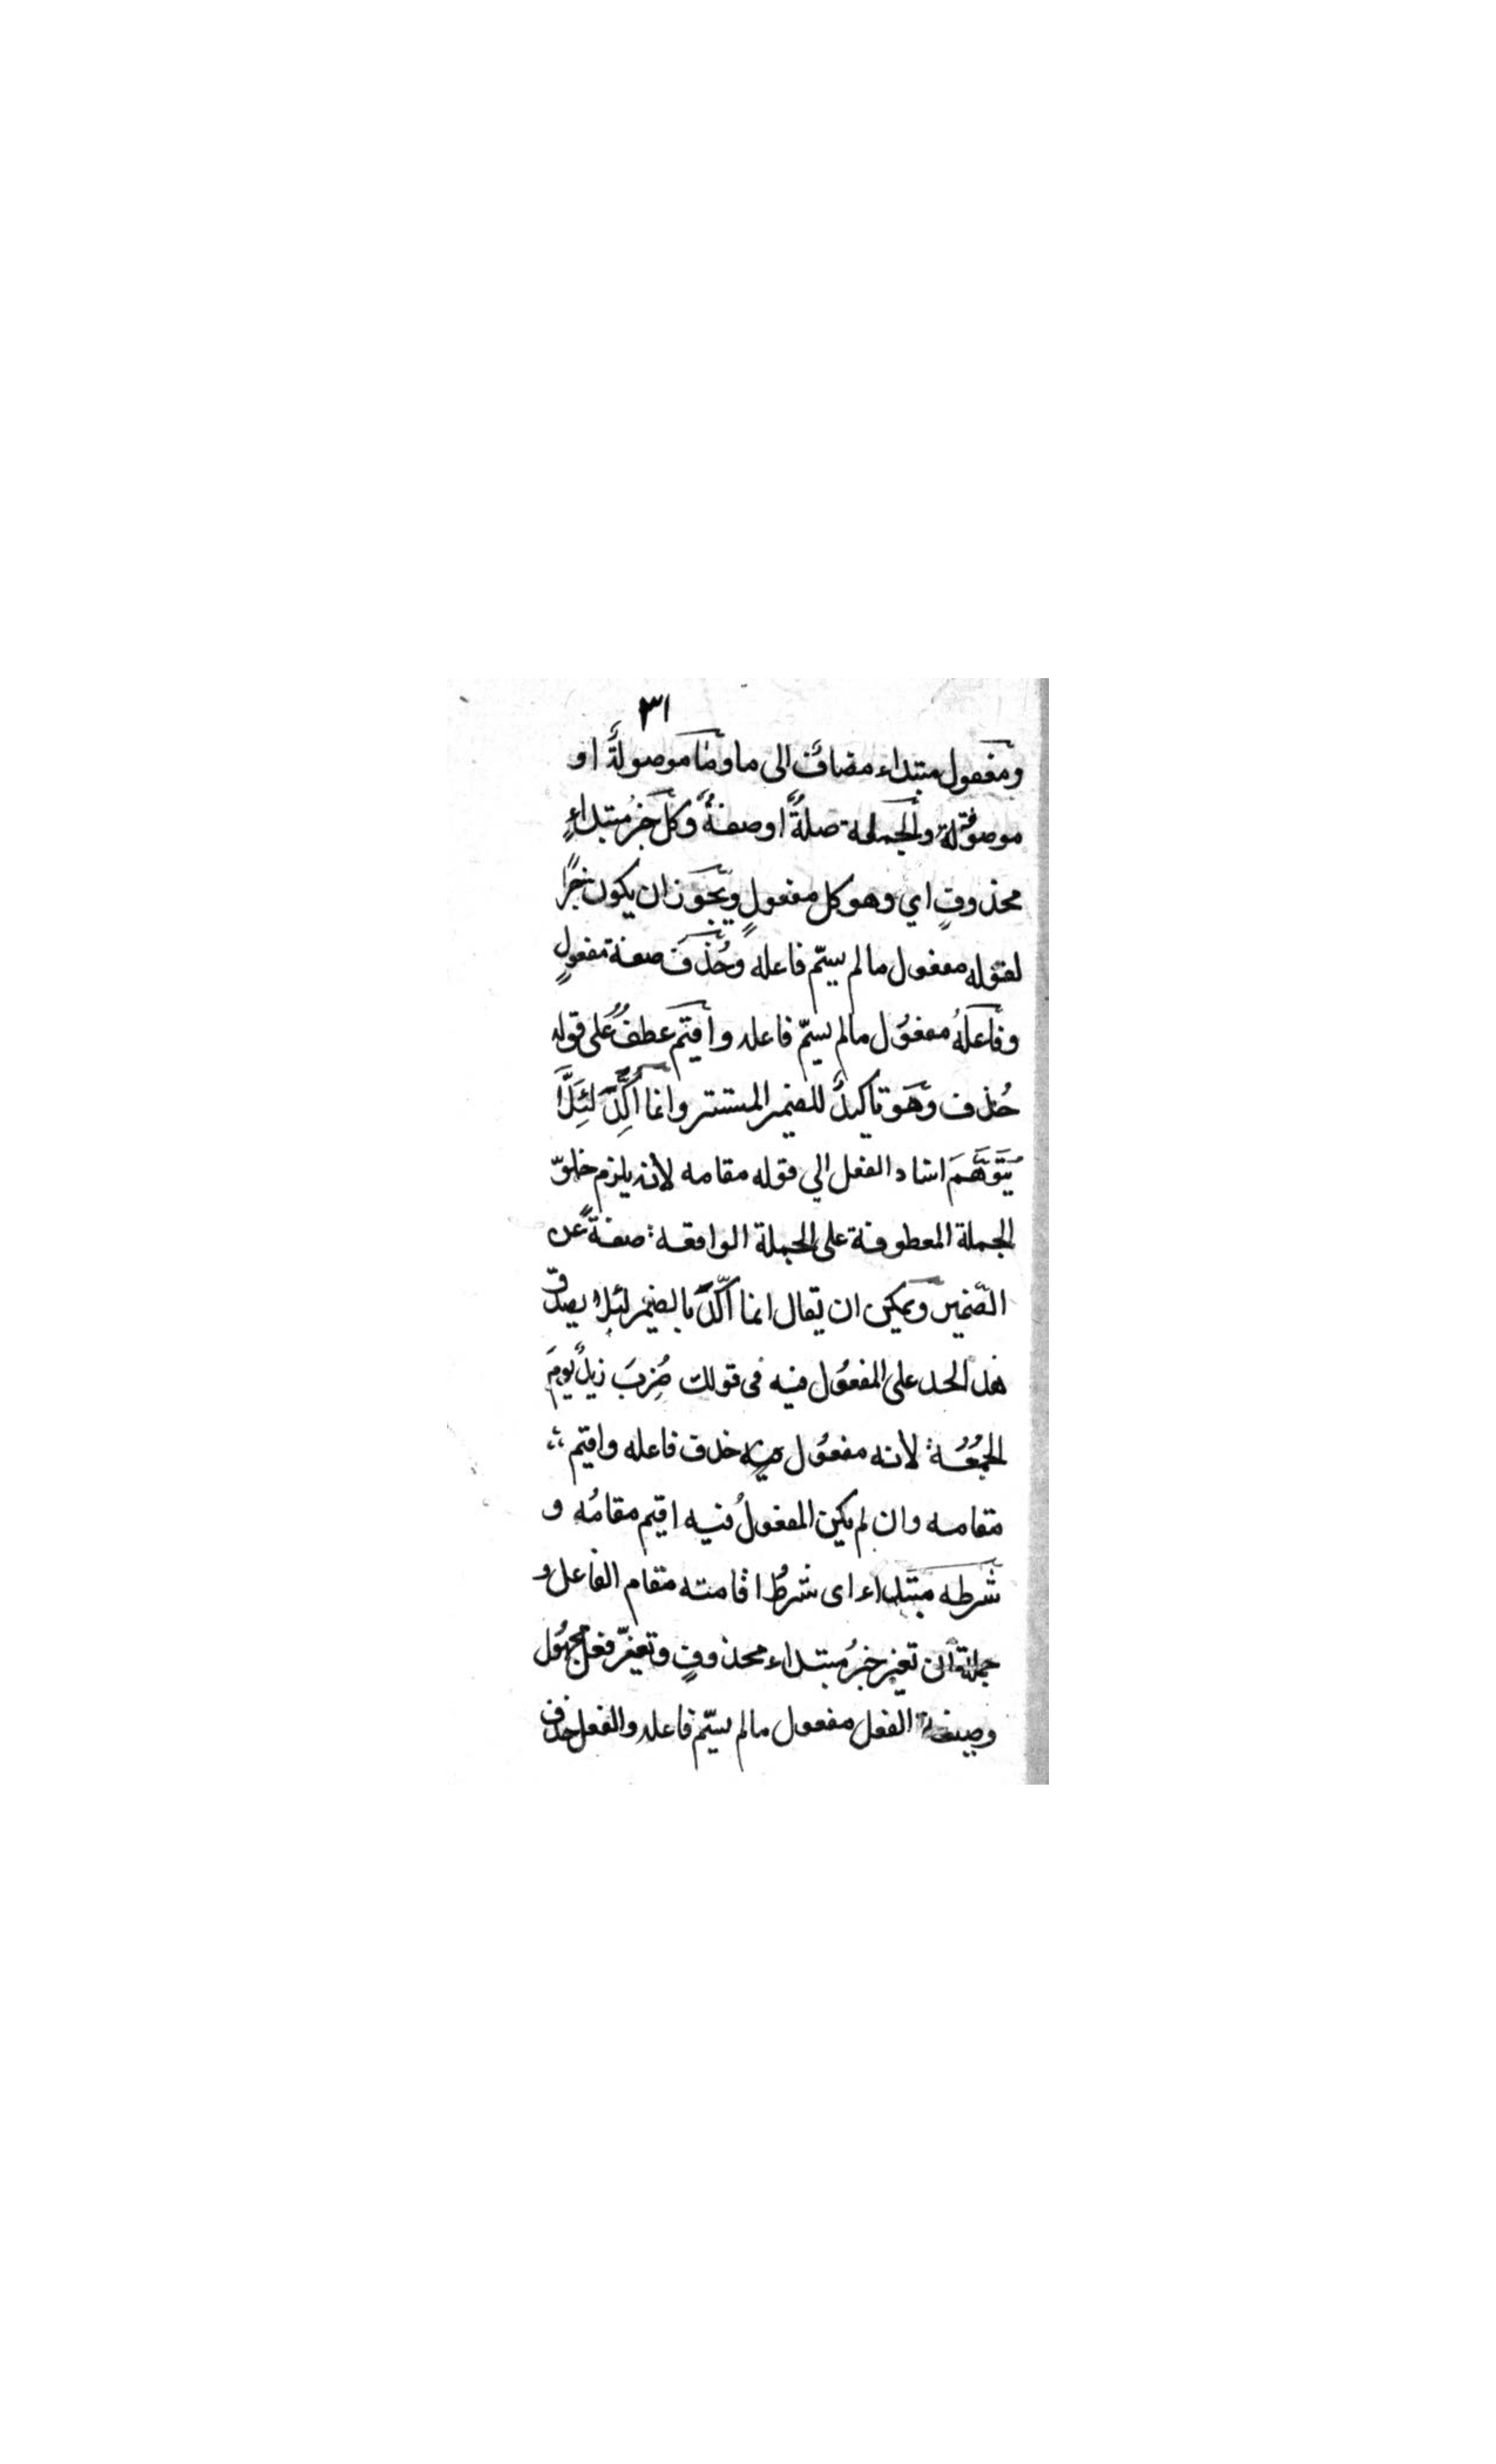 ٣١
ومفعول مبتداء مضافٌ الى ما وما موصولةٌ او
موصوفة والجملة صلةٌ او صفةٌ وكل خبرُ مبتداءٍ
محذوفٍ اي وهو كل مفعولٍ ويجوز ان يكون خبرًا
لقوله مفعول مالم يسمّ فاعله وحُذف صفة مفعولٍ
وفاعلهُ مفعُول مالم يسمّ فاعله واقيم عطفٌ على قوله
حُذف وهو تاكيدٌ للضمير المستتر وانما اُكِّدَ لئَلّا
يُتَوَهَّمَ اسناد الفعل الي قوله مقامه لأنه يلزم خلوّ
الجملة المعطوفة على الجملة الواقعة صفةً عن
الضمير ويمكن ان يقال انما اُكّد بالضمير لئلا يصدق
هذ الحد على المفعُول فيه فى قولك ضُرِبَ زيدٌ يومَ
الجمُعُة لأنه مفعُول فيه حذف فاعله واقيم
مقامه وان لم يكن المفعولُ فيه اقيم مقامُه و
شرطه مبتداء اى شرطُ اقامته مقام الفاعل و
جملة ان تغير خبرُ مبتداء محذوفٍ وتغيّر فعل مجهُول
وصيغة الفعل مفعول مالم يسمّ فاعله والفعل حذف